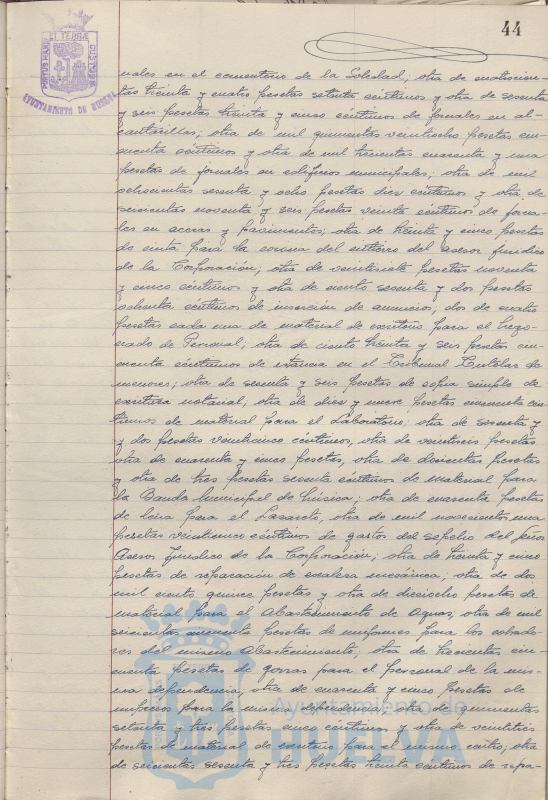 44
PORTUS MARIS ET TERRÆ CUSTODIA
AYUNTAMIENTO DE HUELVA
nales en el cementerio de la Soledad; otra de
tas treinta y cuatro pesetas setenta céntimos y otra de sesenta
y seis pesetas treinta y cinco céntimos de jornales en al-
cantarillas; otra de mil quinientas veintiocho pesetas cin-
cuenta céntimos y otra de mil trescientas cuarenta y una
pesetas de jornales en edificios municipales; otra de mil
ochocientas sesenta y ocho pesetas diez céntimos y otra de
seiscientas noventa y seis pesetas veinte céntimos de jorna-
les en aceras y pavimentos; otra de treinta y cinco pesetas
de cinta para la corona del entierro del asesor jurídico
de la Corporación; otra de veintisiete pesetas noventa
y cinco céntimos y otra de ciento sesenta y dos pesetas
ochenta céntimos de inserción de anuncios; dos de cuatro
pesetas cada una de material de escritorio para el Nego-
ciado de Personal; otra de ciento treinta y seis pesetas cin-
cuenta céntimos de estancia en el Tribunal Tutelar de
menores; otra de sesenta y seis pesetas de copia simple de
escritura notarial, otra de diez y nueve pesetas cincuenta cén-
timos de material para el Laboratorio, otra de sesenta y
y dos pesetas veinticinco céntimos, otra de veintiseis pesetas
otra de cuarenta y cinco pesetas, otra de doscientas pesetas
y otra de tres pesetas sesenta céntimos de material para
la Banda Municipal de Música; otra de cuarenta pesetas
de leña para el Lazareto, otra de mil novecientas una
pesetas veinticinco céntimos de gastos del sepelio del
Asesor Jurídico de la Corporación; otra de treinta y cinco
pesetas de reparación de escalera mecánica; otra de dos
mil ciento quince pesetas y otra de dieciocho pesetas de
material para el Abastecimiento de Aguas; otra de mil
seiscientas cuarenta pesetas de uniformes para los cobrado-
res del mismo Abastecimiento, otra de trescientas cin-
cuenta pesetas de gorras para el personal de la mis-
ma dependencia, otra de cuarenta y cinco pesetas de
impresos para la misma dependencia, otra de quinientas
setenta y tres pesetas cinco céntimos y otra de veintitrés
pesetas de material de escritorio para el mismo centro, otra
de seiscientas sesenta y tres pesetas treinta céntimos de repa-
Ayuntamiento de
HUELVA